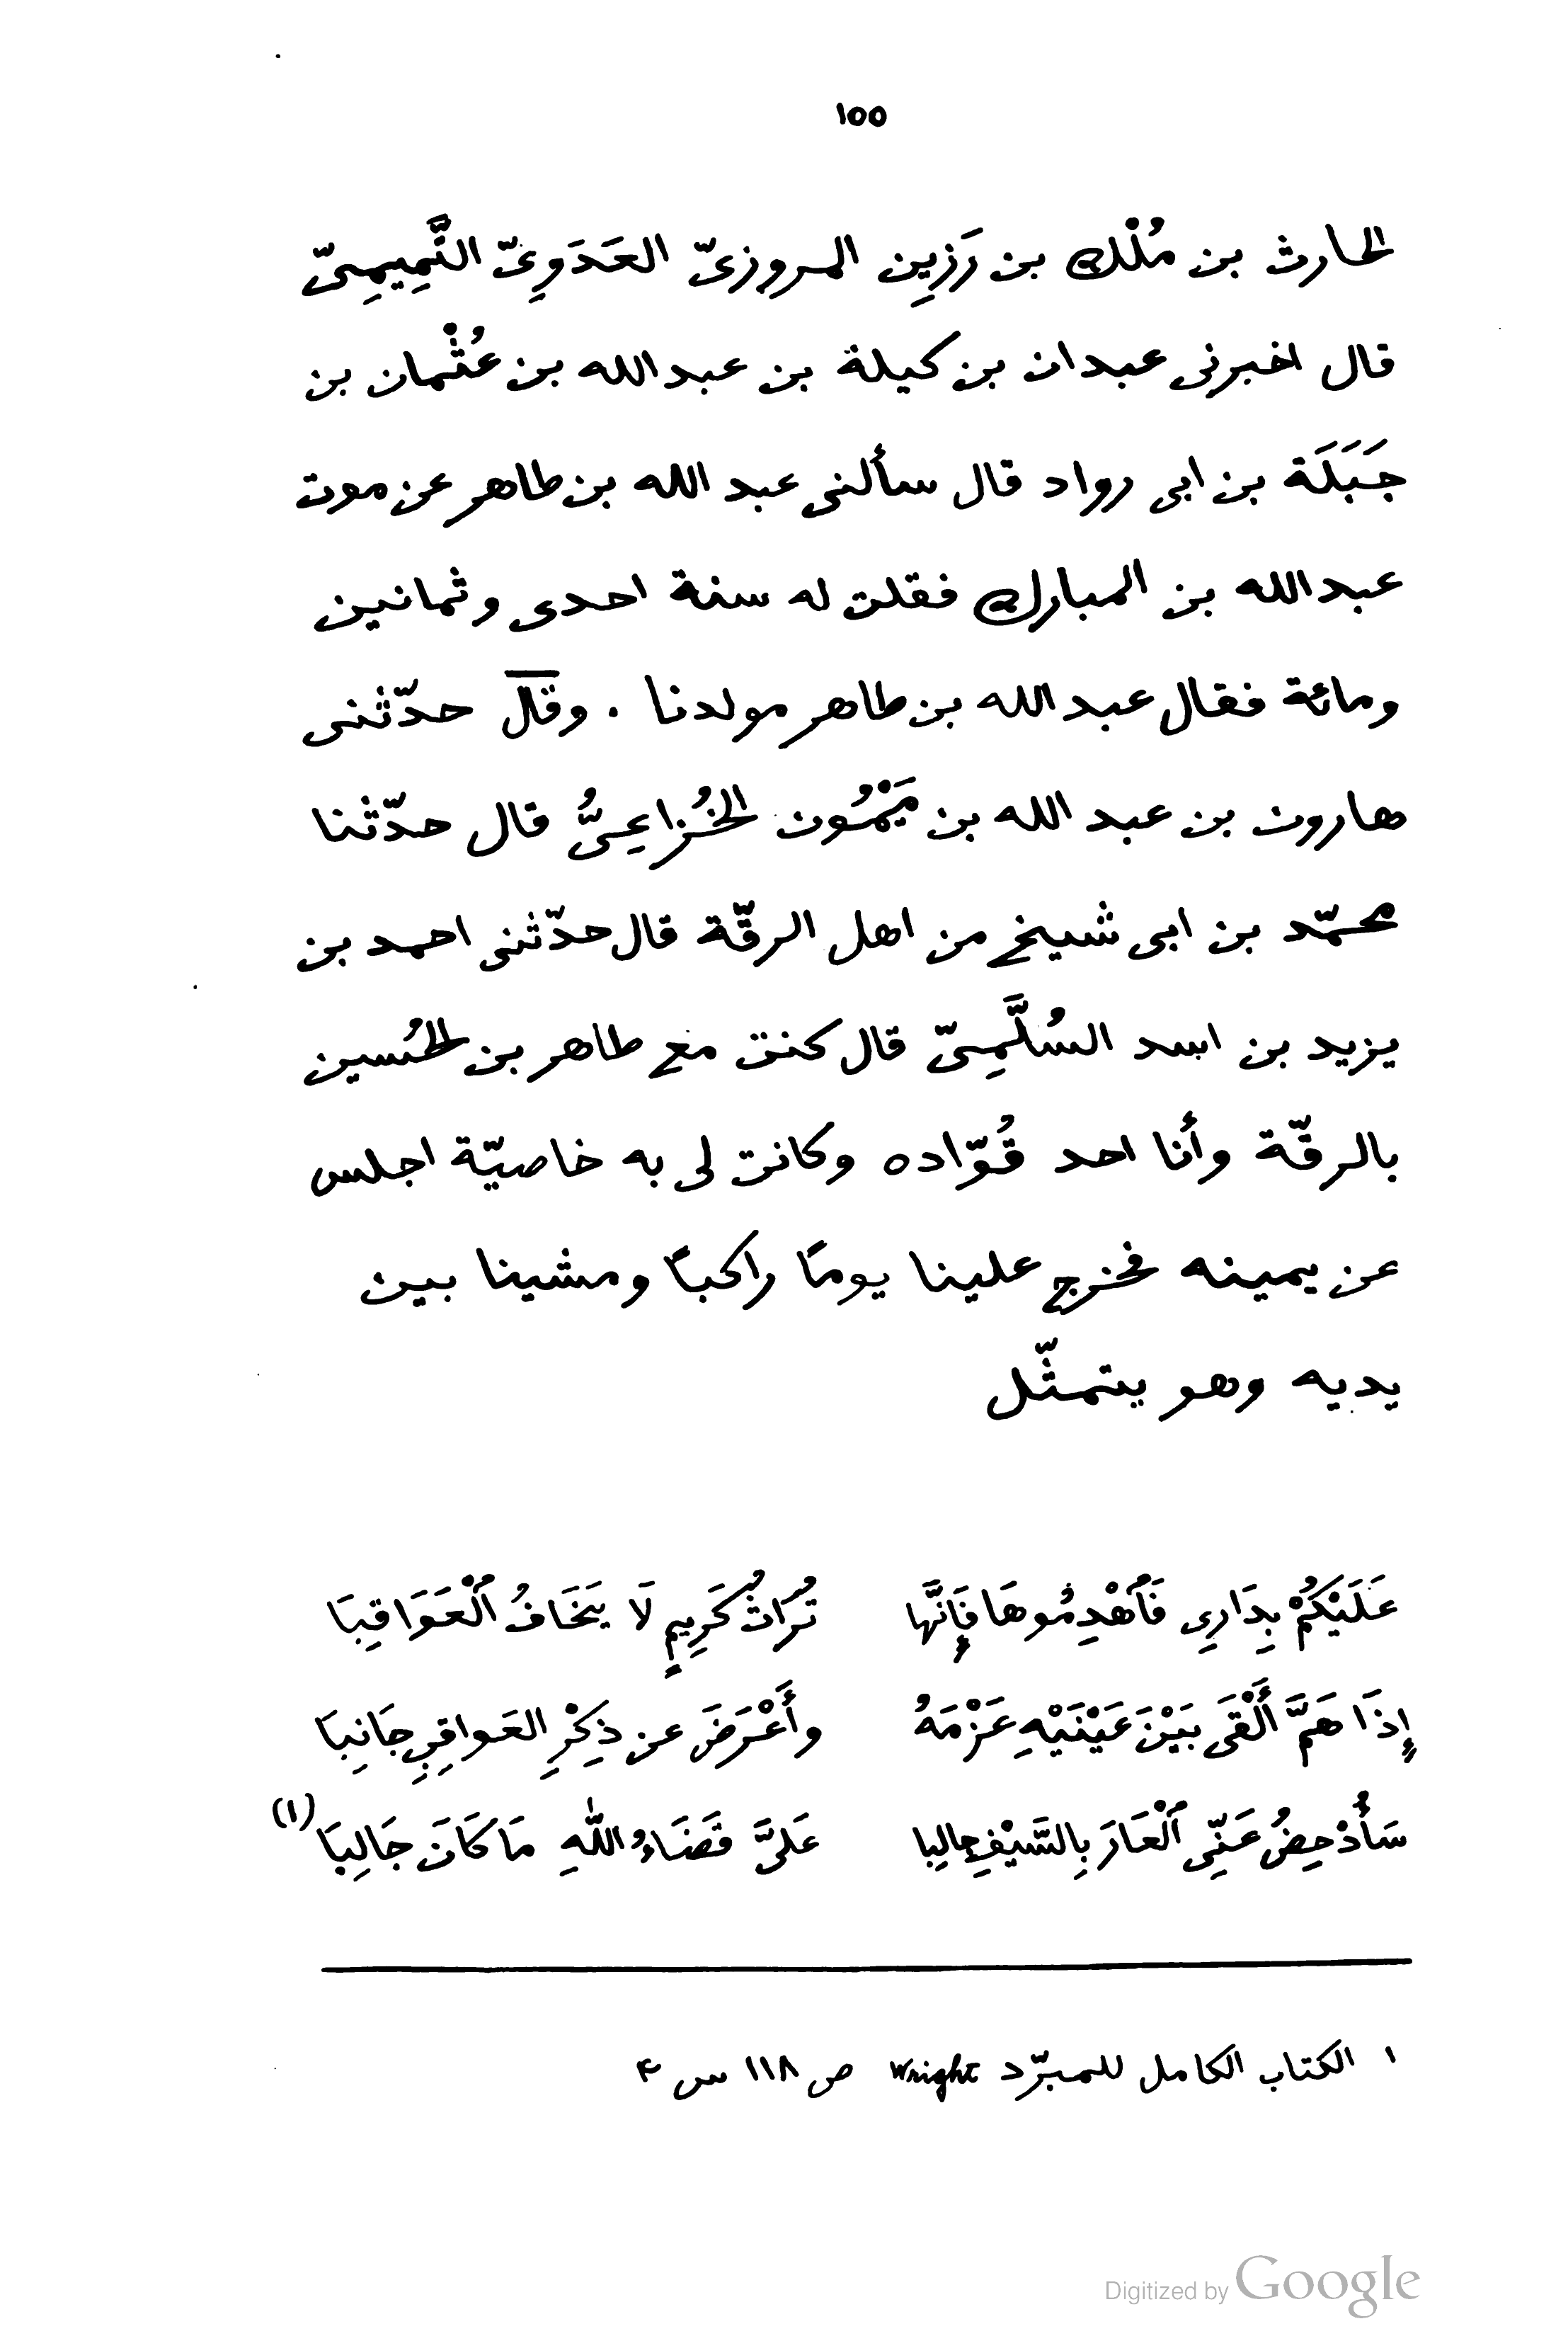 ١٥٥
الحارث بن مُلْك بن رَزِين المروزىّ العَدَوِىّ التَّمِيمِىّ
قال اخبرنى عبدان بن كيلة بن عبد الله بن عُثْمان بن
جَبَلَة بن ابى رواد قال سألنى عبد الله بن طاهر عن موت
عبد الله بن المبارك فقلت له سنة احدى وثمانين
ومائة فقال عبد الله بن طاهر مولدنا . وقال حدّثنى
هارون بن عبد الله بن مَيْمُون الخُزاعِىُّ قال حدّثنا
محمّد بن ابى شيخ من اهل الرقّة قال حدّثنى احمد بن
يزيد بن اسد السُلَّمِىّ قال كنت مع طاهر بن الحُسين
بالرقّة وأنا احد قُوّاده وكانت لى به خاصيّة اجلس
عن يمينه فخرج علينا يومًا راكبًا ومشينا بين
يديه وهو يتمثّل
عَلَيْكُمْ بِدَارِى فَٱهْدِمُوهَا فَإِنَّها تُرَاثُ كَرِيمٍ لَا يَخَافُ ٱلْعَوَاقِبَا
إِذَا هَمَّ أَلْقَى بَيْنَ عَيْنَيْهِ عَزْمَهُ وأَعْرَضَ عن ذِكْرِ العَواقِبِ جَانِبَا
سَأُدْحِضُ عَنِّى ٱلْعَارَ بِالسَّيْفِ جالِبا عَلىَّ قَضَاءُ اللّٰهِ مَا كَانَ جَالِبَا (١)
١ الكتاب الكامل للمبرّد Wright ص ١١٨ س ۴
Digitized by Google